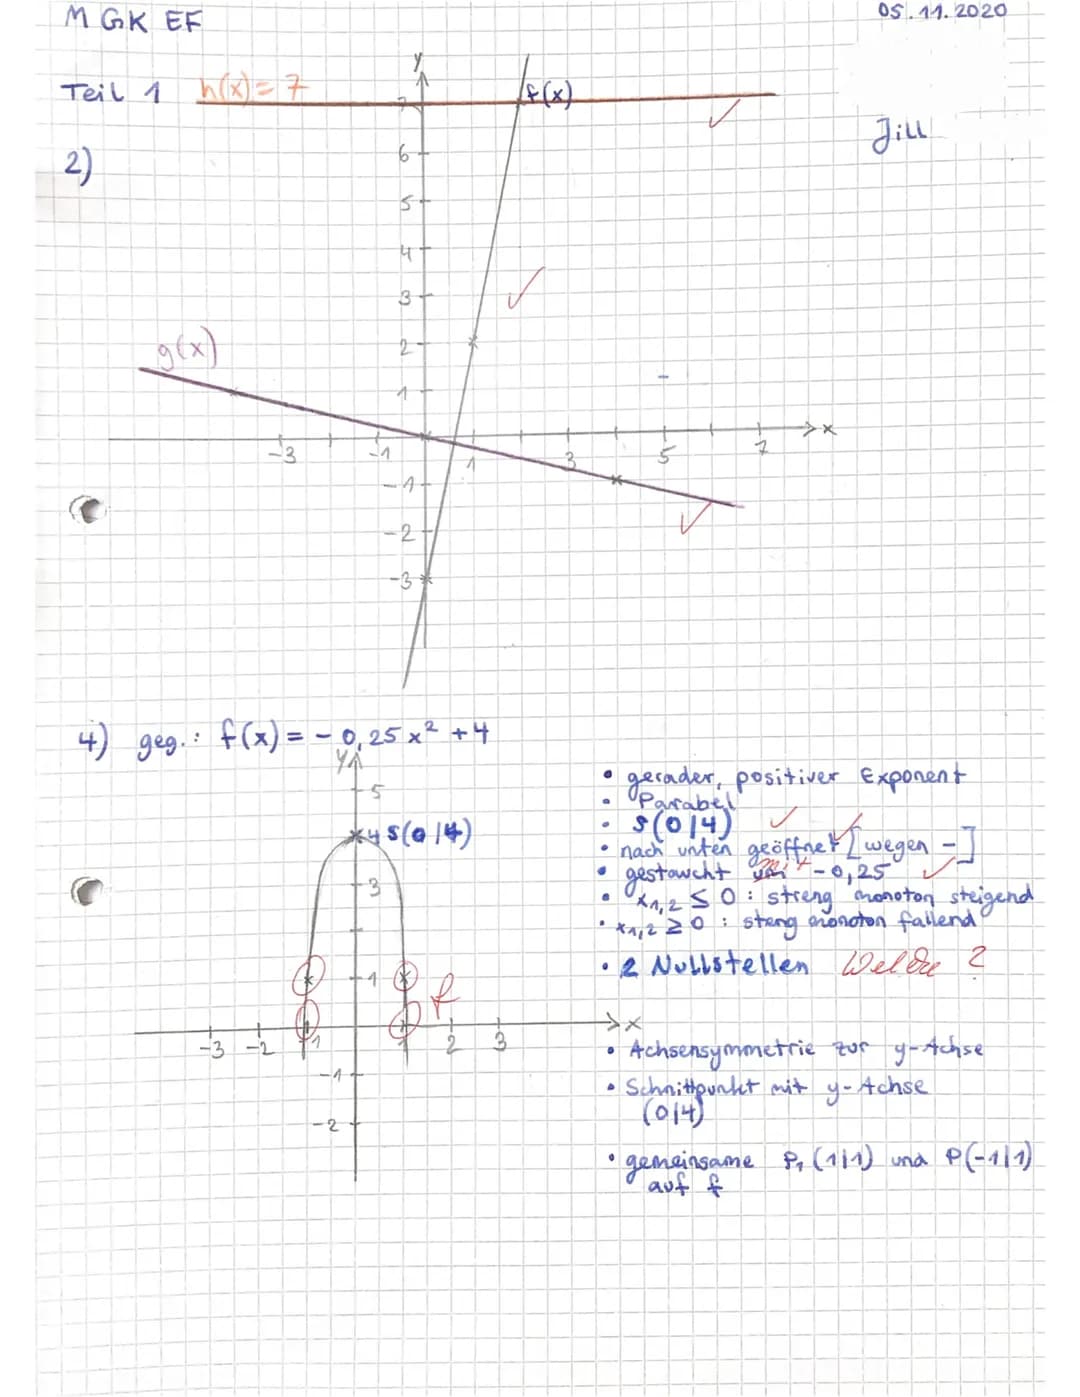 M GK EF
05.11.2020
Teil 1 h(x) = 7
Jill
2)
y
f(x)
7
6
5
4
3
2
1
g(x)
-3 -1 1 3 5 7 x
-1
-2
-3
4) geg.: f(x) = - 0,25x² + 4
y
5
4 S(0|4)
3
1
-3 -2 -1 1 2 3 x
-1
-2
f
• gerader, positiver Exponent
• Parabel
• S(0|4)
• nach unten geöffnet [wegen -]
• gestaucht mit -0,25
• x1,2 ≤ 0 : streng monoton steigend
• x1,2 ≥ 0 : steng monoton fallend
• 2 Nullstellen Welche ?
• Achsensymmetrie zur y-Achse
• Schnittpunkt mit y-Achse
(0|4)
• gemeinsame P1 (1|1) und P(-1|1)
auf f